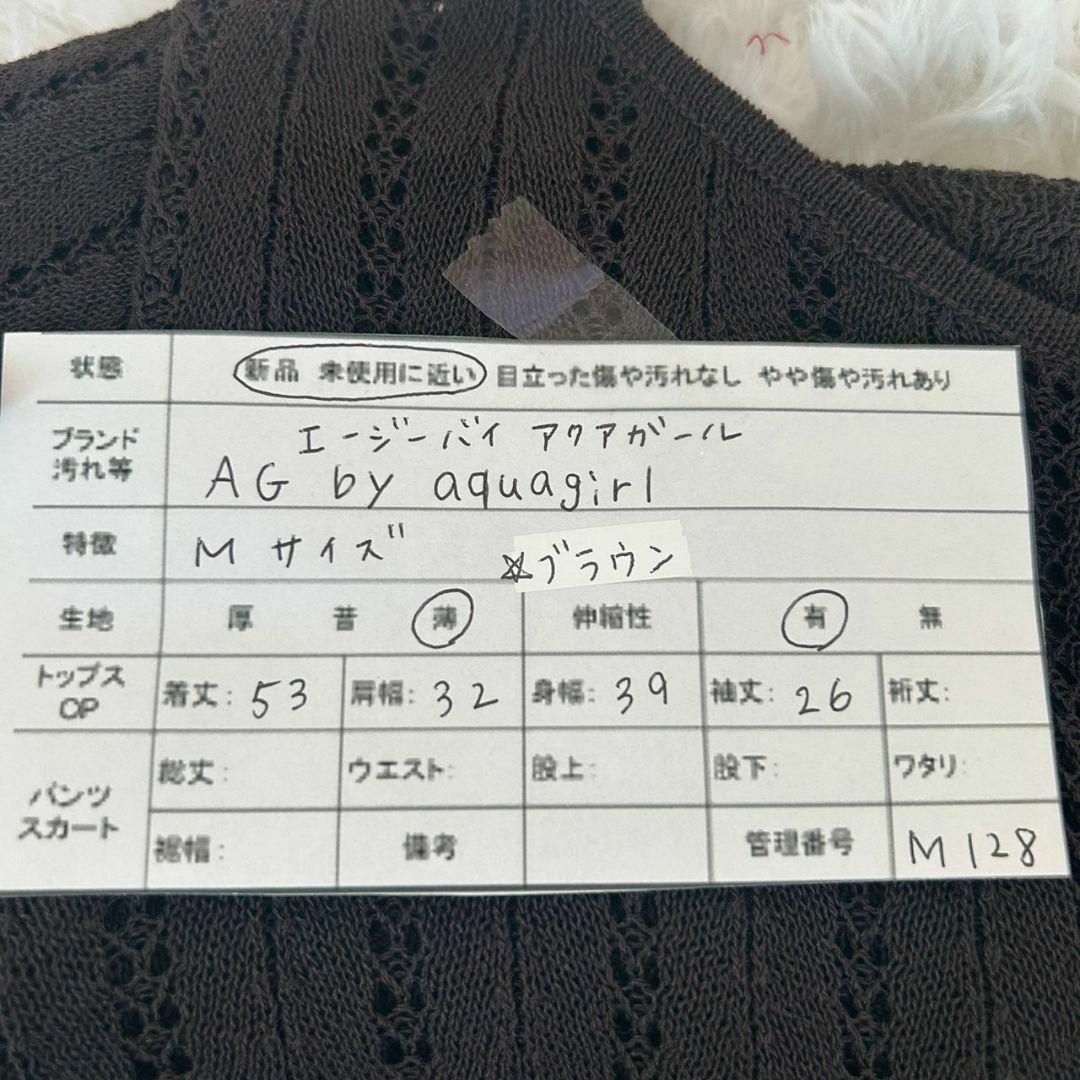 状態 新品 未使用に近い 目立った傷や汚れなし やや傷や汚れあり
ブランド エージーバイ アクアガール
汚れ等 AG by aquagirl
特徴 Mサイズ ☆ブラウン
生地 厚 普 薄 伸縮性 有 無
トップス
OP 着丈: 53 肩幅: 32 身幅: 39 袖丈: 26 裄丈:
パンツ
スカート 総丈: ウエスト: 股上: 股下: ワタリ:
裾幅: 備考 管理番号 M128